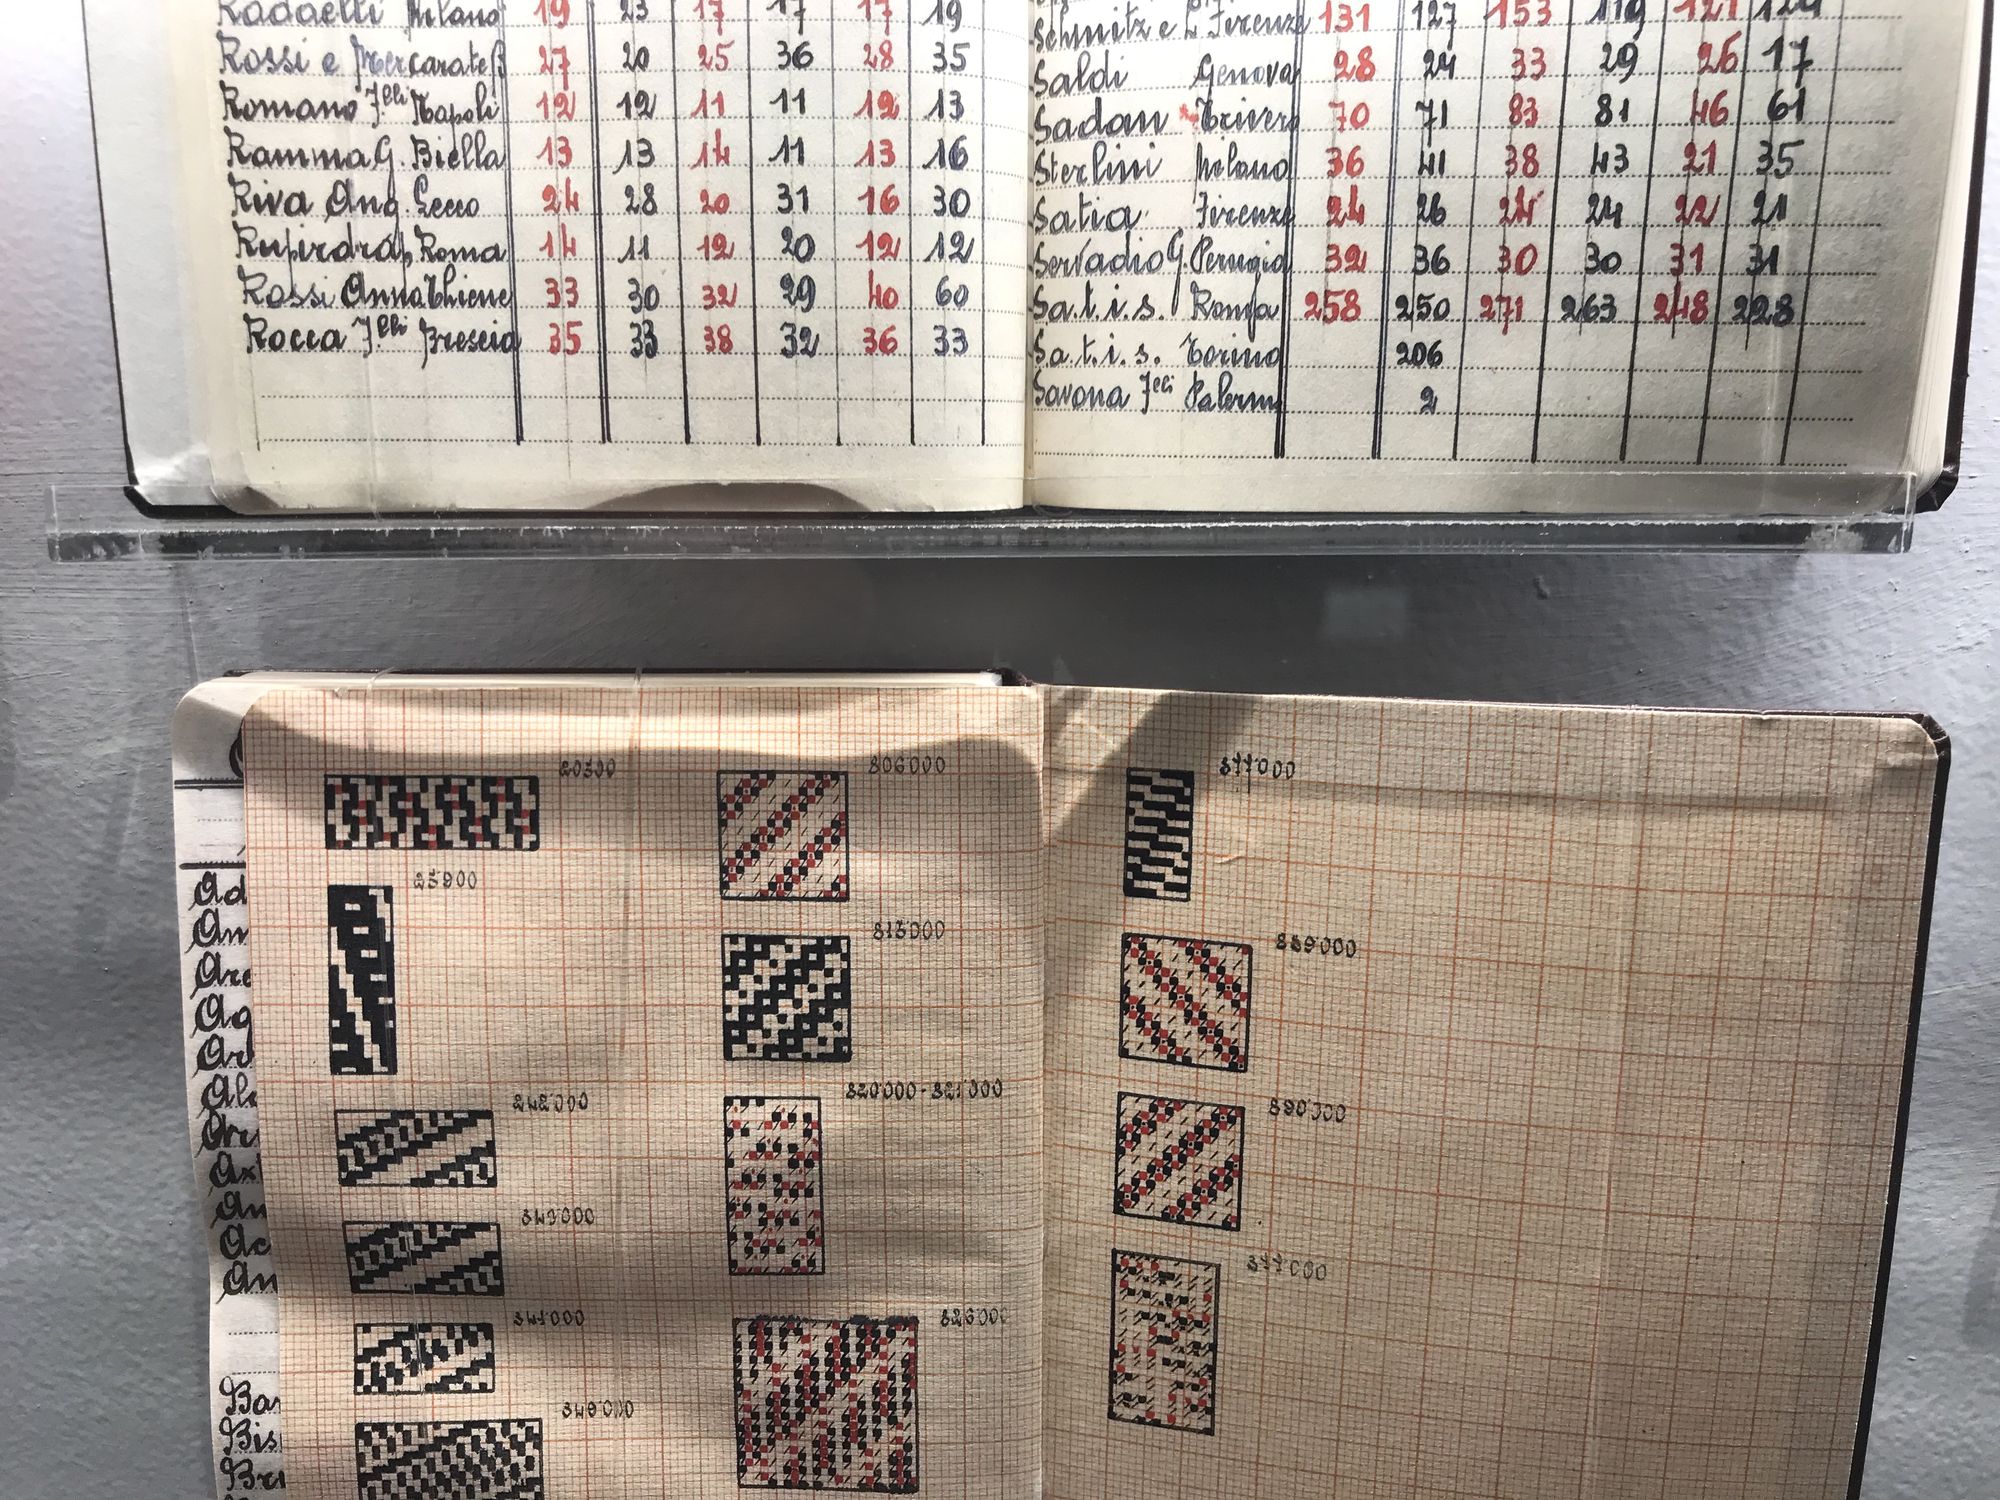 Radaelli Milano 19 23 17 17 17 19
Rossi e Mercarate B 27 20 25 36 28 35
Romano F.lli Napoli 12 12 11 11 12 13
Ramma G. Biella 13 13 14 11 13 16
Riva Ang. Lecco 24 28 20 31 16 30
Roma 14 11 12 20 12 12
Rossi Anna Thiene 33 30 32 29 40 60
Rocca F.lli Brescia 35 33 38 32 36 33
Schmitz e L. Firenze 131 127 153 119 121 124
Saldi Genova 28 24 33 29 26 17
Sadan Trivero 70 71 83 81 46 61
Sterlini Milano 36 41 38 43 21 35
Satia Firenze 24 26 24 24 22 21
Servadio G. Perugia 32 36 30 30 31 31
Sa.t.i.s. Roma 258 250 271 263 248 228
Sa.t.i.s. Torino 206
Savona F.lli Palermo 2
Ad
Am
Are
Ag
Ar
Ale
An
Ac
An
Bar
Bis
20300
23900
242'000
343'000
341'000
349'000
306'000
313'000
320'000-321'000
326'000
377'000
389'000
390'000
377'000